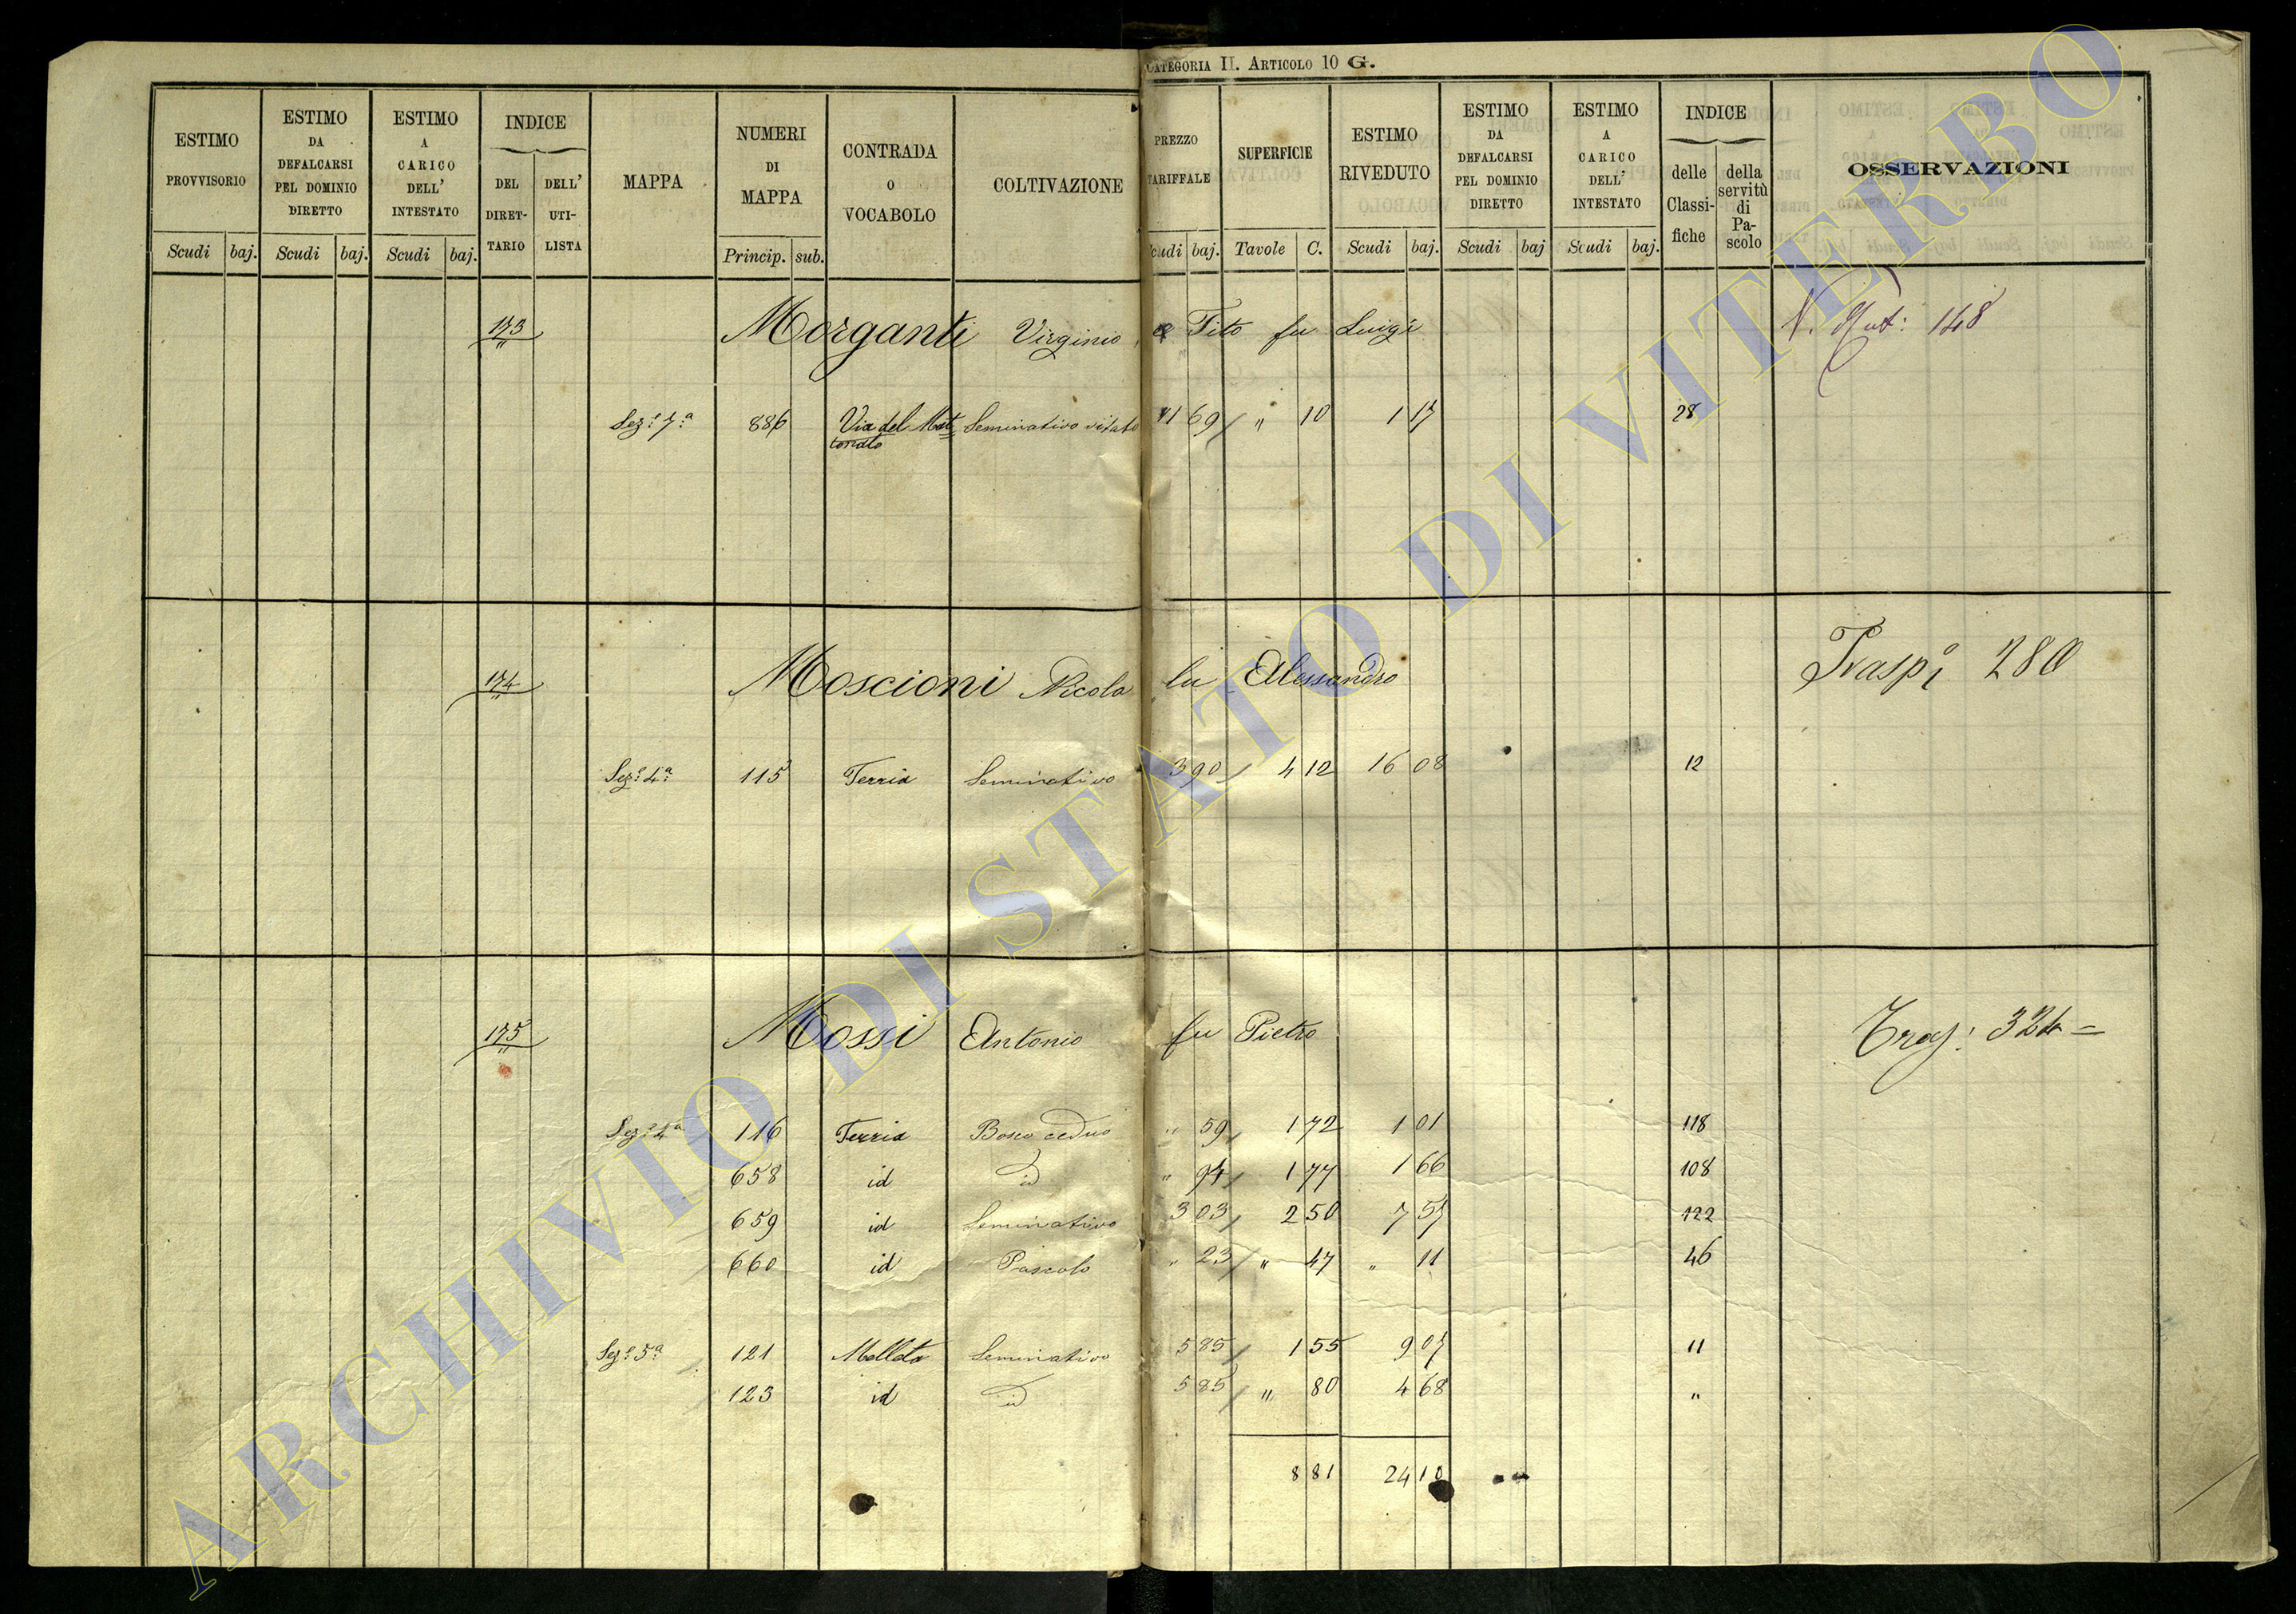 CATEGORIA II. ARTICOLO 10 G.
ESTIMO PROVVISORIO Scudi baj.
ESTIMO DA DEFALCARSI PEL DOMINIO DIRETTO Scudi baj.
ESTIMO A CARICO DELL' INTESTATO Scudi baj.
INDICE DEL DIRET-TARIO DELL' UTI-LISTA
MAPPA
NUMERI DI MAPPA Princip. sub.
CONTRADA O VOCABOLO
COLTIVAZIONE
PREZZO TARIFFALE Scudi baj.
SUPERFICIE Tavole C.
ESTIMO RIVEDUTO Scudi baj.
ESTIMO DA DEFALCARSI PEL DOMINIO DIRETTO Scudi baj
ESTIMO A CARICO DELL' INTESTATO Scudi baj.
INDICE delle Classi-fiche della servitù di Pa-scolo
OSSERVAZIONI
173 Morganti Virginio, e Tito fu Luigi 148
Sez.e 7.a 886 Via del Mat= Seminativo vitato 11 69 " 10 1 17 28
tonato
174 Moscioni Nicola fu Alessandro 280
Sez.e 4.a 115 Terria Seminativo 3 90 4 12 16 08 12
175 Mossi Antonio fu Pietro 324=
Sez.e 4.a 116 Terria Bosco ceduo " 59 1 72 1 01 118
658 id id " 94 1 77 1 66 108
659 id Seminativo 3 03 2 50 7 57 122
660 id Pascolo " 23 " 47 " 11 46
Sez.e 5.a 121 Melleta Seminativo 5 85 1 55 9 07 11
123 id id 5 85 " 80 4 68 "
8 81 24 10
ARCHIVIO DI STATO DI VITERBO